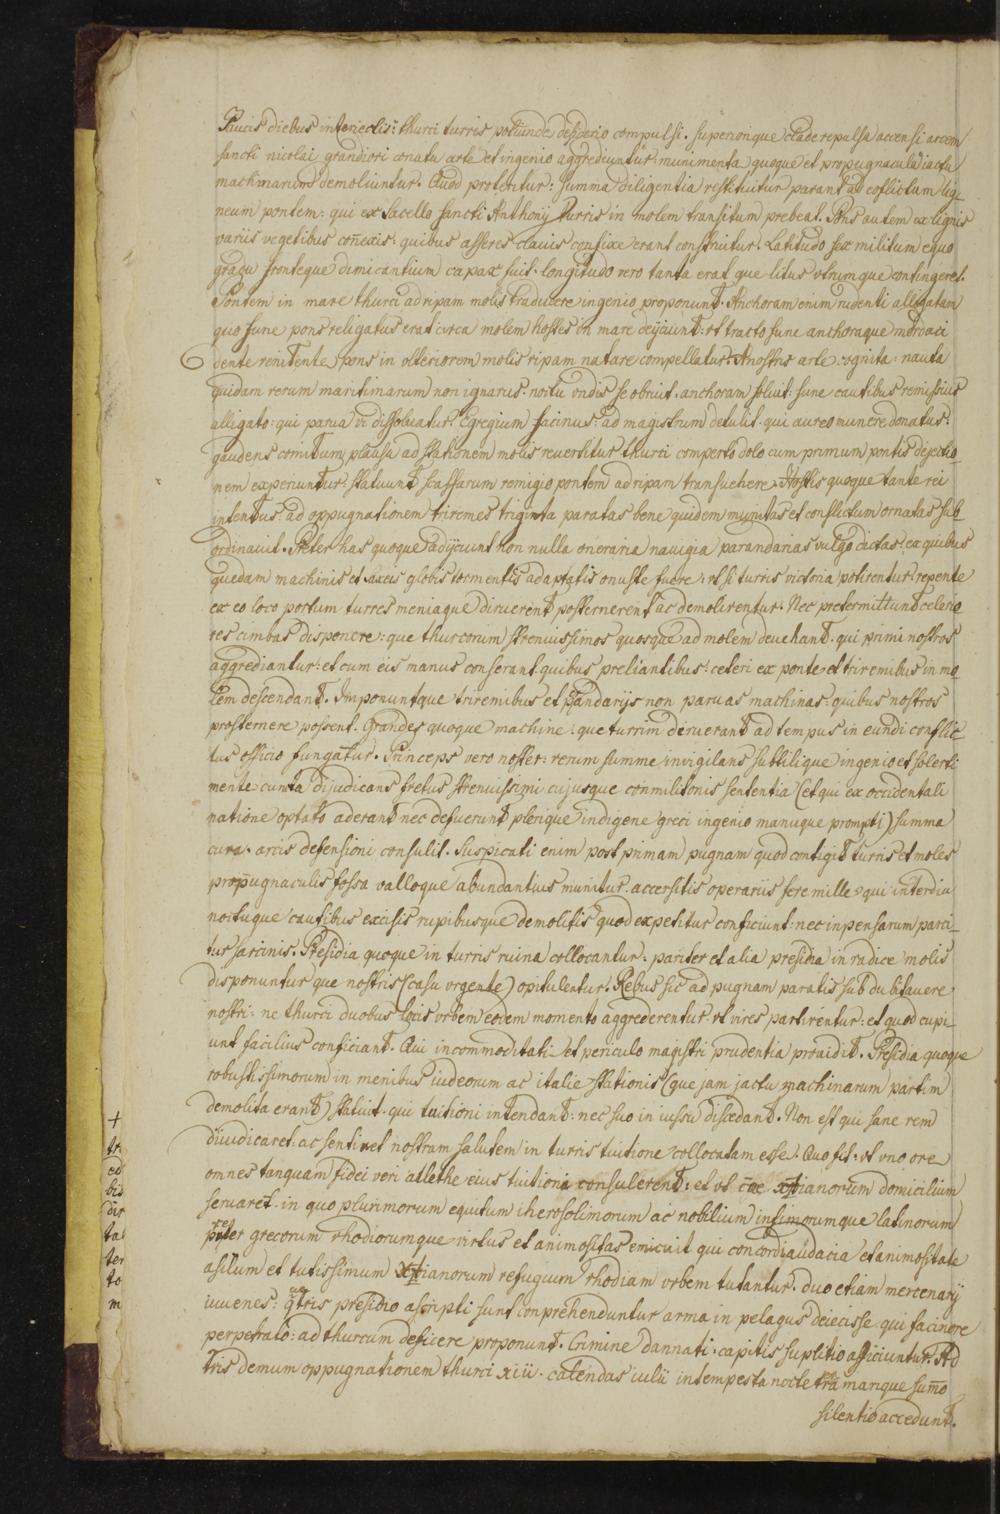 Paucis diebus interiectis: thurci turris potiunde desiderio compulsi. superiorique clade repulsa accensi arcem
sancti nicolai grandiori conatu arte et ingenio aggrediuntur. munimenta quoque et propugnacula iactu
machinarum demoliuntur. Quod proteritur: summa diligentia restituitur parant ad coflictum lig-
neum pontem: qui ex Sacello sancti Anthonij turris in molem transitum prebeat. Pons autem ex lignis
variis vegetibus conexis. quibus asseres clavis confixe erant construitur. Latitudo sex militum equo
gradu fronteque dimicantium capax fuit. longitudo vero tanta erat que litus utrumque contingeret.
Pontem in mare thurci ad ripam molis traducere ingenio proponunt. Anchoram enim rudenti alligatam
quo fune pons religatus erat circa molem hostes in mare deijciunt: ut tracto fune anchoraque mordaci
dente renitente pons in ulteriorem molis ripam natare compellatur. A nostris arte cognita: nauta
quidam rerum maritimarum non ignarus. noctu undis se obruit. anchoram soluit: fune cautibus remissius
alligato: qui parua vi dissoluatur. Egregium facinus: ad magistrum detulit. qui aureo munere donatus.
gaudens comitum plausu ad stationem molis reuertitur. thurci comperto dolo cum primum pontis dejectio-
nem experiuntur. statuunt scaffarum remigio pontem ad ripam transuehere. Hostis quoque tante rei
intentus: ad oppugnationem triremes triginta paratas bene quidem munitas et conflictum ornatas sub-
ordinauit. Preter has quoque adijciunt non nulla oneraria nauigia parandarias vulgo dictas: ex quibus
quedam machinis et saxeis globis tormentis adaptatis onuste fuere: ut si turris victoria potirentur: repente
ex eo loco portum turres meniaque diruerent posternerent ac demolirentur. Nec pretermittunt celerio-
res cimbas disponere: que thurcorum strenuissimos quosque ad molem deuehant. qui primi nostros
aggrediantur: et cum eis manus conserant. quibus preliantibus: ceteri ex ponte et triremibus in mo-
lem descendant. Imponuntque triremibus et pandarijs non paruas machinas: quibus nostros
prosternere possent. Grandes quoque machine: que turrim deruerant ad tempus in eundi conflic-
tus officio fungatur. Princeps vero noster: rerum summe invigilans subtilique ingenio et solerti
mente cuncta dijudicans fretus strenuissimi cujusque conmilitonis sententia (et qui ex occidentali
natione optato aderant nec defuerunt plerique indigene greci ingenio manuque prompti) summa
cura. arcis defensioni consulit. Suspicati enim post primam pugnam quod contigit turris et moles
propugnaculis fossa valloque abundantius munitur. accersitis operariis fere mille. qui interdiu
noctuque cautibus excisis rupibusque demolitis quod expetitur conficiunt: nec inpensarum parci-
tur sarcinis. Presidia quoque in turris ruina collocantur. pariter et alia presidia in radice molis
disponuntur que nostris (casu urgente) opitulentur. Rebus sic ad pugnam paratis sub dubitauere
nostri: ne thurci duobus locis urbem eodem momento aggrederentur. ut vires partirentur: et quod cupi-
unt facilius conficiant. Qui incommoditati et periculo magistri prudentia prouidit. Presidia quoque
robustissimorum in menibus iudeorum ac italie stationis (que jam jactu machinarum partim
demolita erant) statuit. qui tuitioni intendant: nec suo in iussu discedant. Non est qui sane rem
diiudicaret: ac sentiret nostram salutem in turris tuitione collocatam esse. Quo fit: ut uno ore
omnes tanquam fidei veri athlethe eius tuitioni consulerent: et ut coe xpianorum domicilium
seruaret. in quo plurimorum equitum iherosolimorum ac nobilium infimorumque latinorum
preter grecorum rhodiorumque virtus et animositas emicuit qui concordi audacia et animositate
asilum et tutissimum xpianorum refugium rhodiam urbem tutantur. duo etiam mercenarij
iuuenes: qui tris presidio ascripti sunt conprehenduntur arma in pelagus deiecisse qui facinore
perpetrato: ad thurcum deficere proponunt. Crimine dannati. capitis suplitio afficiuntur. Ad
tris demum oppugnationem thurci xiii. calendas iulii intempesta nocte tra marique sumo
silentio accedunt.
+
tri
ed
bid
dir
tal
ter
to
m